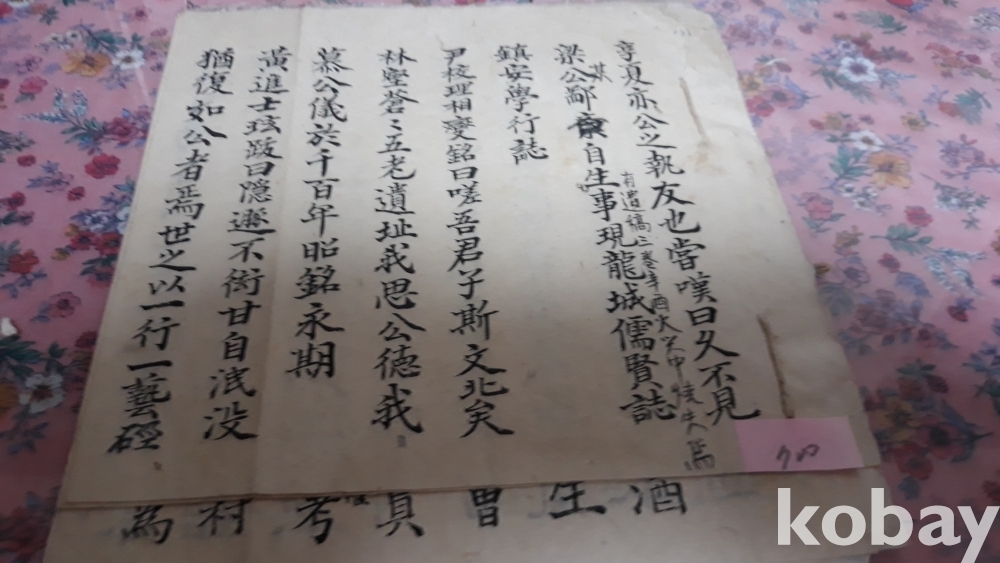 享夏亦公之執友也嘗嘆曰久不見
梁公鄙其吝自生事現龍城儒賢誌
有遺稿三卷辛酉火 中 失焉
鎮安學行誌
尹校理相變銘曰嗟吾君子斯文北矣
林壑蒼〻五老遺址我思公德我
慕公儀於千百年昭銘永期
黃進士玹跋曰隱遯不衒甘自泯没
猶復如公者焉世之以一行一藝硜
酒
生
曾
真
考
村
為
kobay